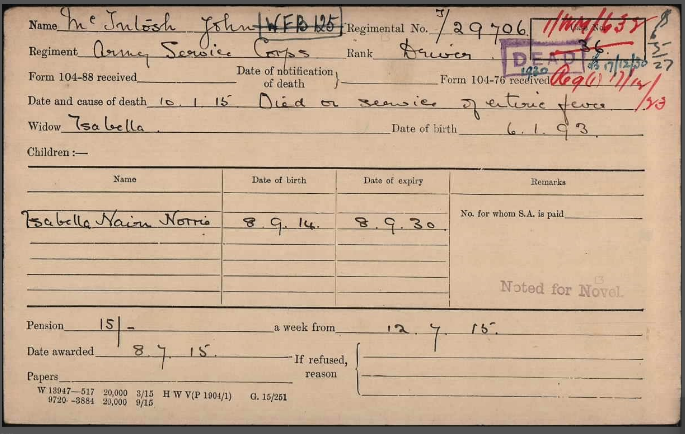 Name Mc Intosh John WFB 125 Regimental No. T/29706 1/MM/632 8
36 6
Regiment Army Service Corps Rank Driver DEAD 5
1930 17/12/30 27
Form 104-88 received Date of notification of death } Form 104-76 received Reg(1) 17/12/23
Date and cause of death 10.1.15 Died on service of enteric fever
Widow Isabella. Date of birth 6.1.93.
Children :—
Name Date of birth Date of expiry Remarks
Isabella Nairn Norris 8.9.14. 8.9.30. No. for whom S.A. is paid
Noted for Novel.
Pension 15/- a week from 12.7.15.
Date awarded 8.7.15. If refused, reason {
Papers
W 13947—517 20,000 3/15 H W V(P 1904/1) G. 15/251
9720—3884 20,000 9/15